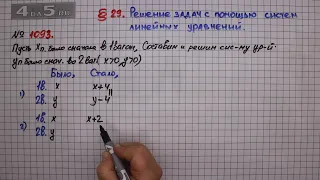 4 да 5.
§ 29. Решение задач с помощью систем
линейных уравнений.
№ 1093.
Пусть х п. было сначала в 1 вагон, Составим и решим сис-му ур-й
у п было снач. во 2 ваг (х>0, у>0)
Было, Стало,
1) 1в. х х+4
2в. у у-4
2) 1в. х х+2
2в. у